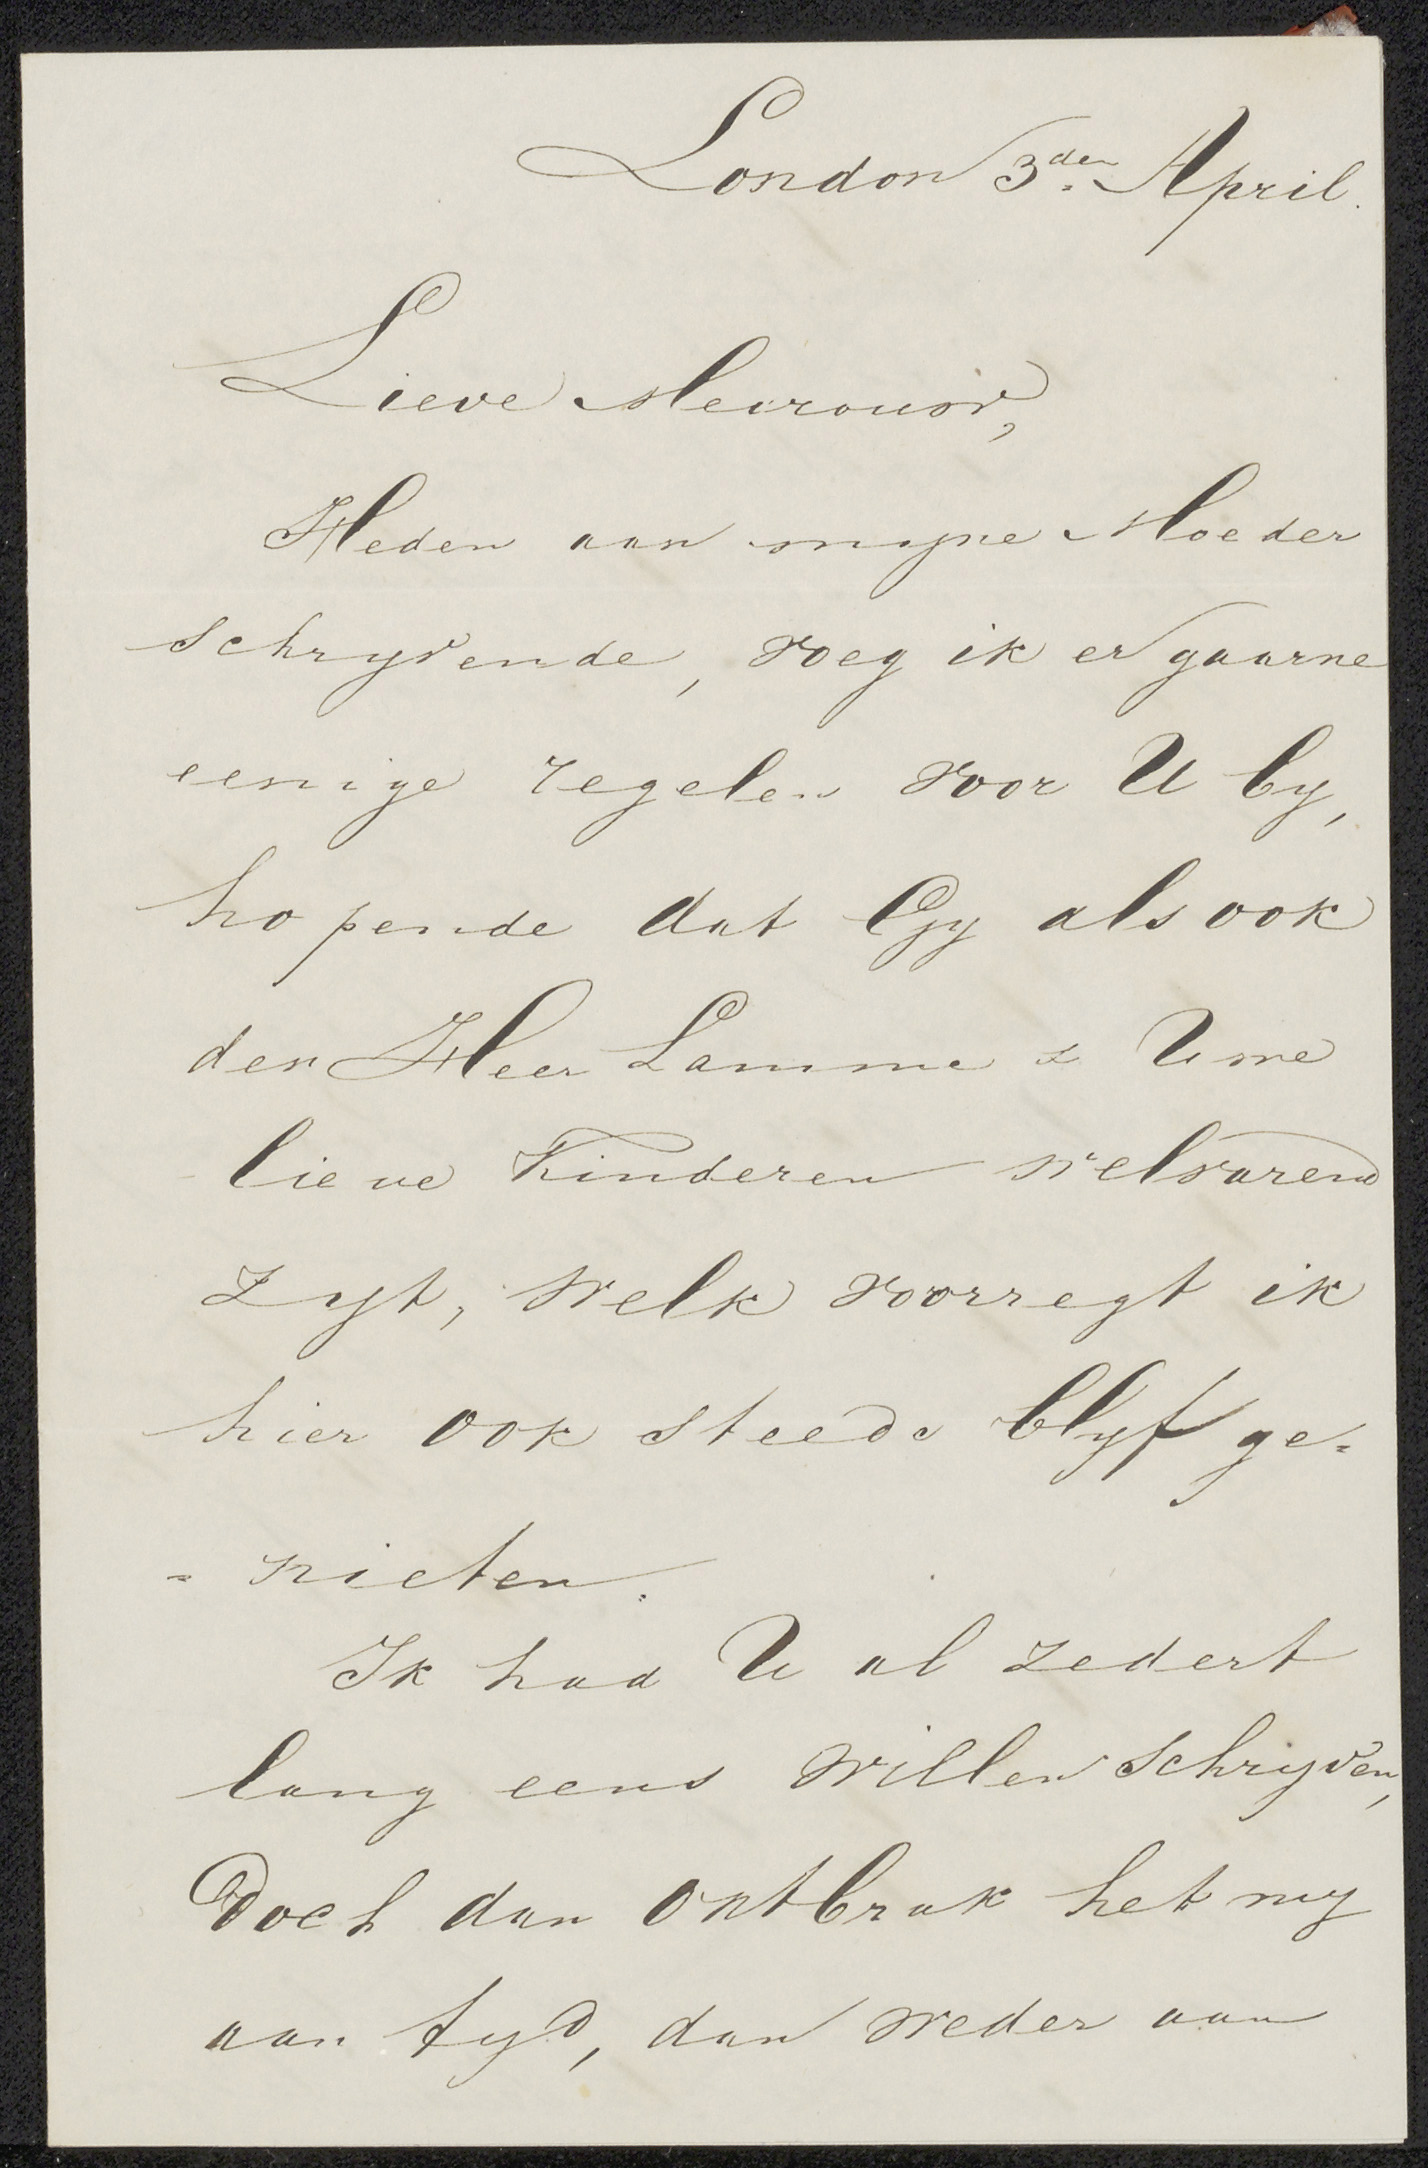 London 3den April.
Lieve Mevrouw,
Heden aan myne Moeder
schryvende, voeg ik er gaarne
eenige regelen voor U by,
hopende dat Gy als ook
den Heer Lamme & Uwe
lieve Kinderen welvarend
zyt, welk voorregt ik
hier ook steeds blyf ge=
=nieten.
Ik had U al zedert
lang eens willen schryven,
Doch dan ontbrak het my
aan tyd, dan weder aan